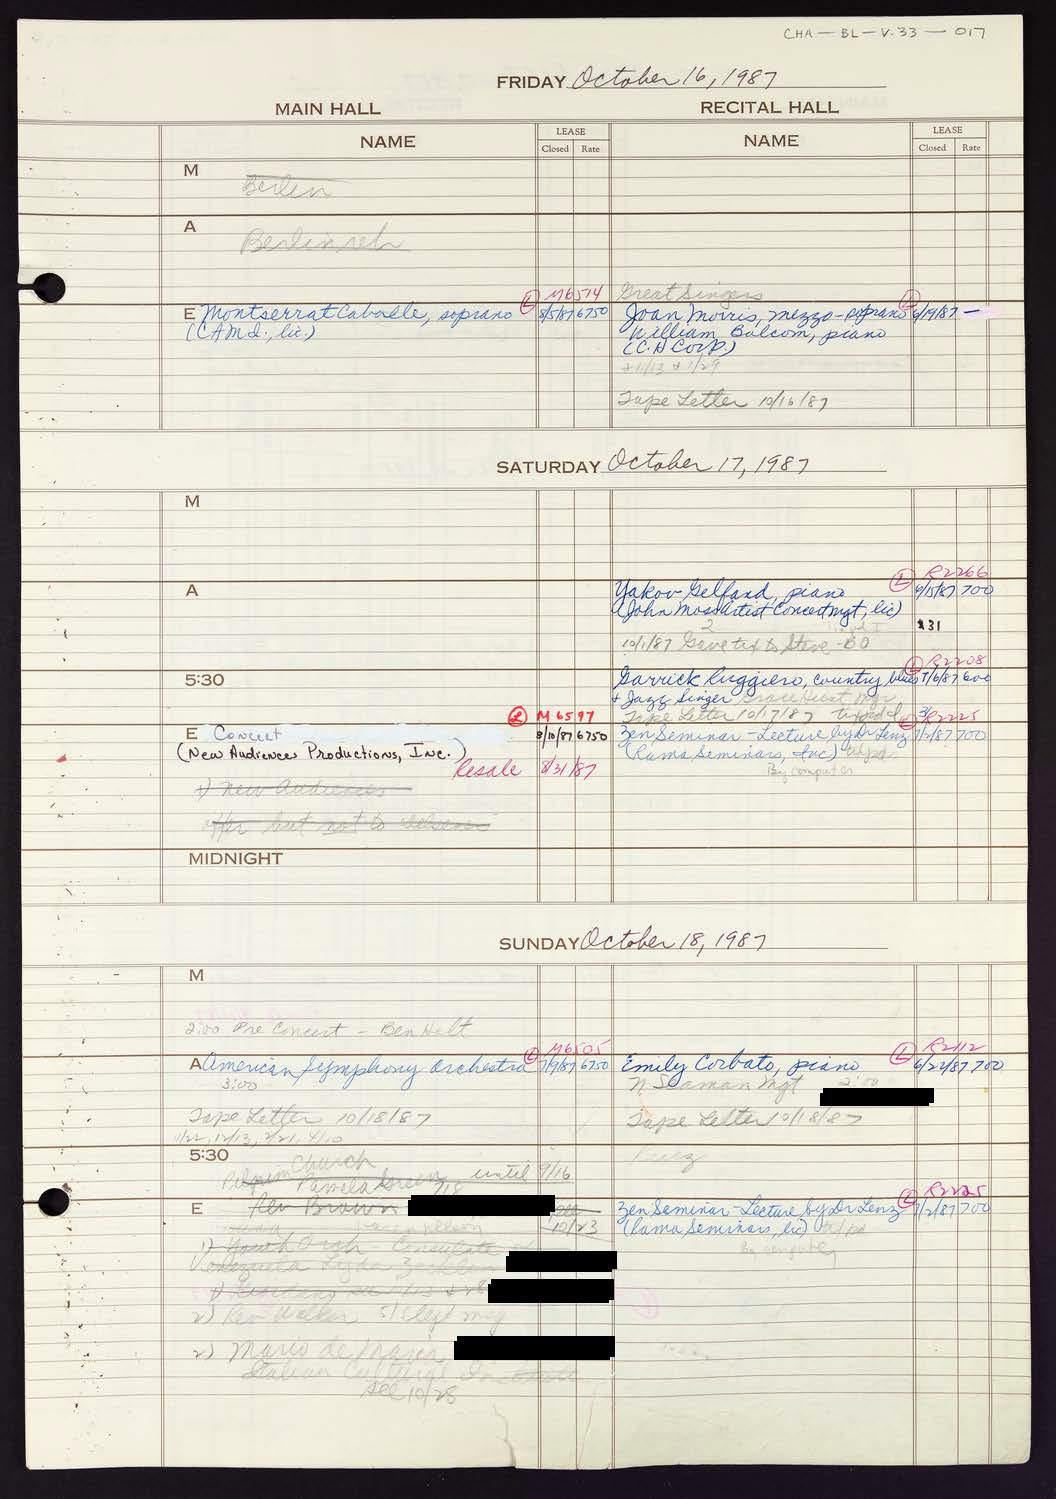 CHA-BL-V.33-017
FRIDAY October 16, 1987
MAIN HALL
RECITAL HALL
NAME
LEASE
Closed Rate
NAME
LEASE
Closed Rate
M
Berlin
A
Berlin reh
M6574
E Montserrat Caballe, soprano L 8/5/87 6750
(CAMI., lic.)
Great Singers
Joan Morris, mezzo-soprano L 6/19/87 —
William Bolcom, piano
(C.H Corp.)
+ 11/13 + 1/29
Tape Letter 10/16/87
SATURDAY October 17, 1987
M
A
L R2266
Yakov Gelfand, piano 6/15/87 700
(John Mos Artist Concert Mgt, lic)
31
2
10/1/87 Gave tix to Steve - BO
5:30
L R2208
Garrick Ruggiero, country blues 7/6/87 600
+ Jazz Singer
Tape Letter 10/17/87
L M6597
E Concert 8/10/87 6750
(New Audiences Productions, Inc.)
Resale 8/31/87
1) New Audiences
offer but not to
L R2225
Zen Seminar - Lecture by Dr Lenz 7/2/87 700
(Rama Seminars, Inc)
By computer
MIDNIGHT
SUNDAY October 18, 1987
M
2:00 Pre Concert - Ben Holt
L M6505
A American Symphony Orchestra 7/9/87 6750
3:00
Tape Letter 10/18/87
11/22, 12/13, 2/21, 4/10
L R2112
Emily Corbato, piano 6/22/87 700
N. Seaman Mgt 2:00
Tape Letter 10/18/87
5:30
Church
Pilgrim Pamela Green until 9/16
9/18
E Rev Brown
10/23
1) Youth Orch - Consulate
Venezuela
2) Rev Walker
2) Mario de Maria
Italian Cultural Institute
see 10/28
L R2225
Zen Seminar - Lecture by Dr Lenz 7/2/87 700
(Rama Seminars, lic)
By computer